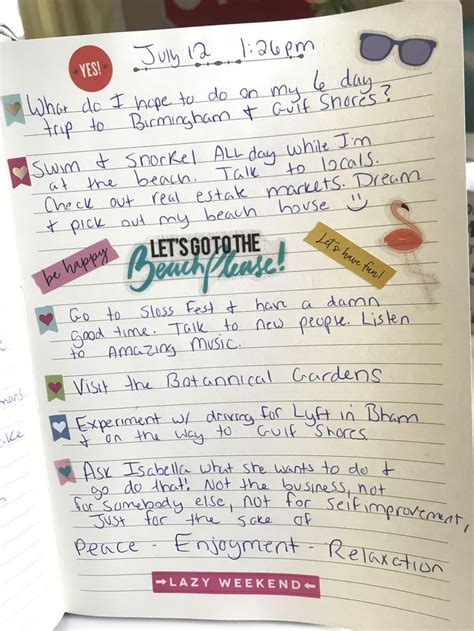 YES!
July 12 1:26pm
What do I hope to do on my 6 day
trip to Birmingham & Gulf Shores?
Swim & Snorkel ALL day while I'm
at the beach. Talk to locals.
Check out real estate markets. Dream
& pick out my beach house
be happy
LET'S GO TO THE
Beach Please!
Let's have fun!
Go to Sloss Fest & have a damn
good time. Talk to new people. Listen
to Amazing Music.
Visit the Botannical Gardens
Experiment w/ driving for Lyft in Bham
& on the way to Gulf Shores.
Ask Isabella what she wants to do &
go do that! Not the business, not
for somebody else, not for self improvement,
Just for the sake of
Peace - Enjoyment - Relaxation
LAZY WEEKEND